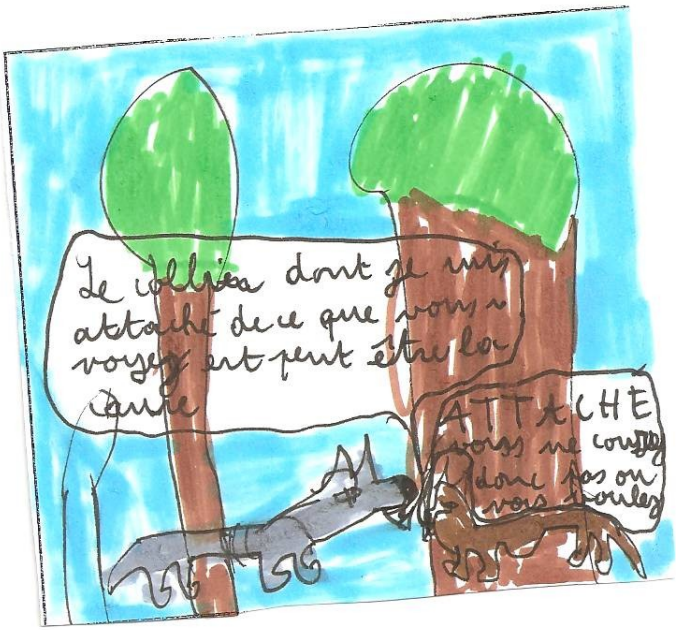 Le collier dont je suis
attaché de ce que vous
voyez est peut être la
cause
ATTACHE
vous ne courez
donc pas ou
vous voulez